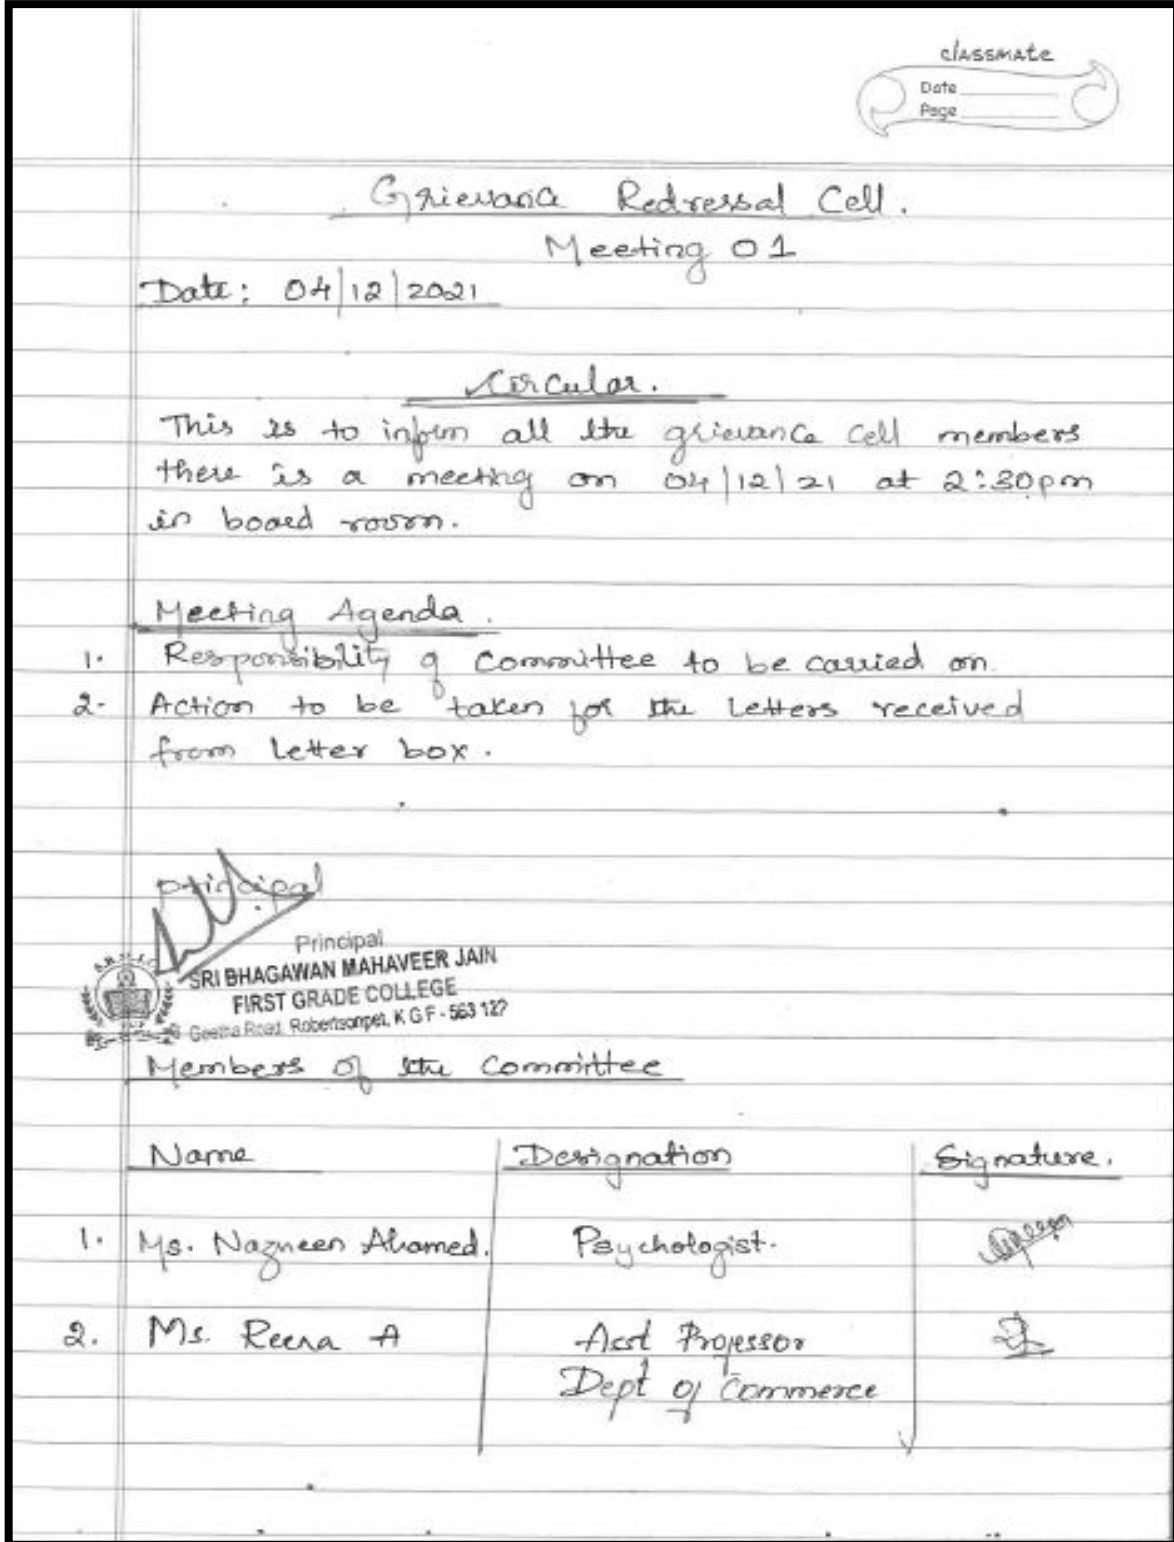 classmate
Date
Page
Grievance Redressal Cell.
Meeting 01
Date: 04/12/2021
Circular.
This is to inform all the grievance cell members
there is a meeting on 04/12/21 at 2:30pm
in board room.
Meeting Agenda.
1. Responsibility of Committee to be carried on.
2- Action to be taken for the Letters received
from Letter box.
principal
Principal
SRI BHAGAWAN MAHAVEER JAIN
FIRST GRADE COLLEGE
Geetha Road, Robertsonpet, K G F - 563 122
Members of the Committee
Name Designation Signature.
1. Ms. Nazneen Ahamed. Psychologist.
2. Ms. Reena A Asst Professor
Dept of Commerce